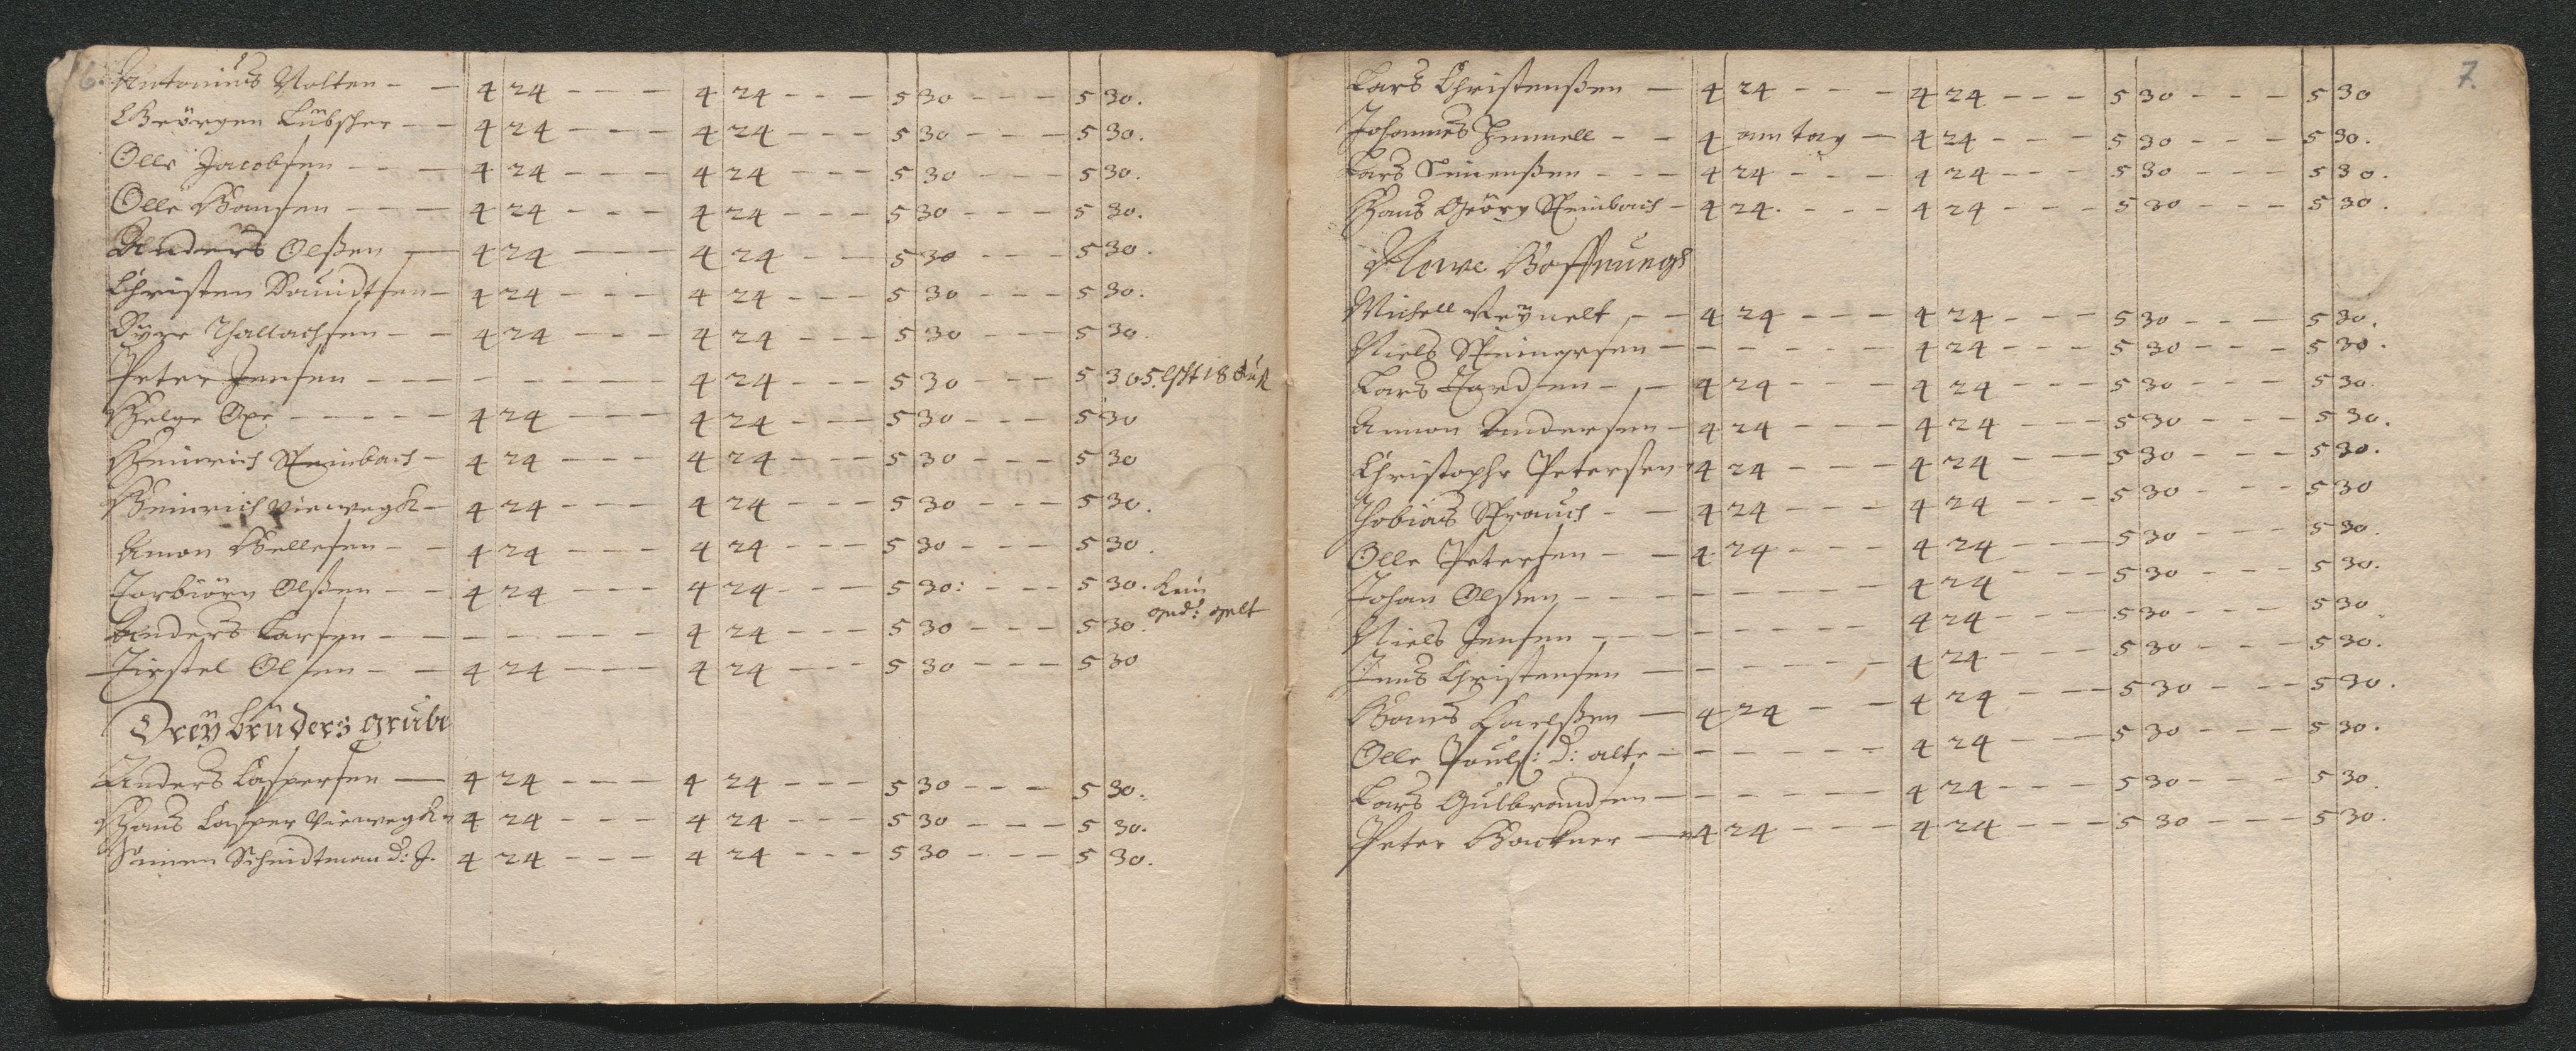 6.
Antonius Nolten - - 4 24 - - - 4 24 - - - 5 30 - - - 5 30.
Geörgen Lubscher - - 4 24 - - - 4 24 - - - 5 30 - - - 5 30.
Olle Jacobsen - - - 4 24 - - - 4 24 - - - 5 30 - - - 5 30.
Olle Hansen - - - 4 24 - - - 4 24 - - - 5 30 - - - 5 30.
Anders Olßen - 4 24 - - - 4 24 - - - 5 30 - - - 5 30.
Christen Dauidtsen - 4 24 - - - 4 24 - - - 5 30 - - - 5 30.
Thallachsen - - 4 24 - - - 4 24 - - - 5 30 - - - 5 30.
Peter Jensen - - - - - - - - 4 24 - - - 5 30 - - - 5 30
Helge - - - - - 4 24 - - - 4 24 - - - 5 30 - - - 5 30
Heinrich Steinbach - 4 24 - - - 4 24 - - - 5 30 - - - 5 30
Heinrich Viewegk - 4 24 - - - 4 24 - - - 5 30 - - - 5 30.
Amon Hellesen - - 4 24 - - - 4 24 - - - 5 30 - - - 5 30.
Torbiörn Olßen - - 4 24 - - - 4 24 - - - 5 30: - - - 5 30. kein
Anders Larsen - - - - - - - 4 24 - - - 5 30 - - - 5 30. gelt
Kirstel Olsen - - 4 24 - - - 4 24 - - - 5 30 - - - 5 30
Dreÿ brüders grube
Anders Caspersen - 4 24 - - - 4 24 - - - 5 30 - - - 5 30.
Hans Casper Viewegk 4 24 - - - 4 24 - - - 5 30 - - - 5 30.
Simen Schmidtman d: J. 4 24 - - - 4 24 - - - 5 30 - - - 5 30.
7.
Lars Christenßen - 4 24 - - - 4 24 - - - 5 30 - - - 5 30
Johannes Himmell - - 4 am tag - 4 24 - - - 5 30 - - - 5 30.
Lars Simenßen - - - 4 24 - - - 4 24 - - - 5 30 - - - 5 30.
Hans Geörg Steinbach - 4 24. - - - 4 24 - - - 5 30 - - - 5 30.
Newe Hoffnungs
Michell Reÿnelt - - 4 24 - - - 4 24 - - - 5 30 - - - 5 30.
Niels - - - - - - 4 24 - - - 5 30 - - - 5 30.
Lars Tordsen - - 4 24 - - - 4 24 - - - 5 30 - - - 5 30.
Amon Andersen - 4 24 - - - 4 24 - - - 5 30 - - - 5 30.
Christophr Petersen 4 24 - - - 4 24 - - - 5 30 - - - 5 30.
Thobias Strauch - - 4 24 - - - 4 24 - - - 5 30 - - - 5 30
Olle Petersen - - 4 24 - - - 4 24 - - - 5 30 - - - 5 30.
Johan Olßen - - - - - - - - 4 24 - - - 5 30 - - - 5 30.
Niels Jensen - - - - - - - - 4 24 - - - 5 30 - - - 5 30
Jens Christensen - - - - - - 4 24 - - - 5 30 - - - 5 30.
Hans Carlßen - 4 24 - - - 4 24 - - - 5 30 - - - 5 30.
Olle Pouls: d: alte - - - - - - 4 24 - - - 5 30 - - - 5 30.
Lars Gulbrandsen - - - - - - 4 24 - - - 5 30 - - - 5 30.
Peter Hackner - 4 24 - - - 4 24 - - - 5 30 - - - 5 30.